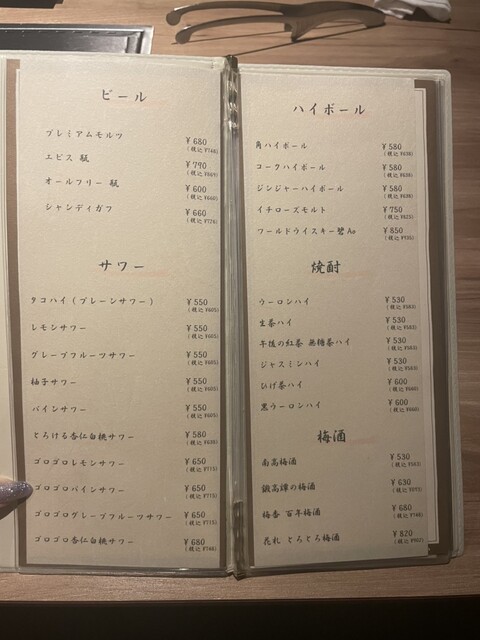 ビール
プレミアムモルツ ¥680
(税込 ¥748)
エビス 瓶 ¥790
(税込 ¥869)
オールフリー 瓶 ¥600
(税込 ¥660)
シャンディガフ ¥660
(税込 ¥726)
サワー
タコハイ(プレーンサワー) ¥550
(税込 ¥605)
レモンサワー ¥550
(税込 ¥605)
グレープフルーツサワー ¥550
(税込 ¥605)
柚子サワー ¥550
(税込 ¥605)
パインサワー ¥550
(税込 ¥605)
とろける杏仁白桃サワー ¥580
(税込 ¥638)
ゴロゴロレモンサワー ¥650
(税込 ¥715)
ゴロゴロパインサワー ¥650
(税込 ¥715)
ゴロゴログレープフルーツサワー ¥650
(税込 ¥715)
ゴロゴロ杏仁白桃サワー ¥680
(税込 ¥748)
ハイボール
角ハイボール ¥580
(税込 ¥638)
コークハイボール ¥580
(税込 ¥638)
ジンジャーハイボール ¥580
(税込 ¥638)
イチローズモルト ¥750
(税込 ¥825)
ワールドウイスキー碧Ao ¥850
(税込 ¥935)
焼酎
ウーロンハイ ¥530
(税込 ¥583)
生茶ハイ ¥530
(税込 ¥583)
午後の紅茶 無糖茶ハイ ¥530
(税込 ¥583)
ジャスミンハイ ¥530
(税込 ¥583)
ひげ茶ハイ ¥600
(税込 ¥660)
黒ウーロンハイ ¥600
(税込 ¥660)
梅酒
南高梅酒 ¥530
(税込 ¥583)
鍛高譚の梅酒 ¥630
(税込 ¥693)
梅香 百年梅酒 ¥680
(税込 ¥748)
花札 とろとろ梅酒 ¥820
(税込 ¥902)